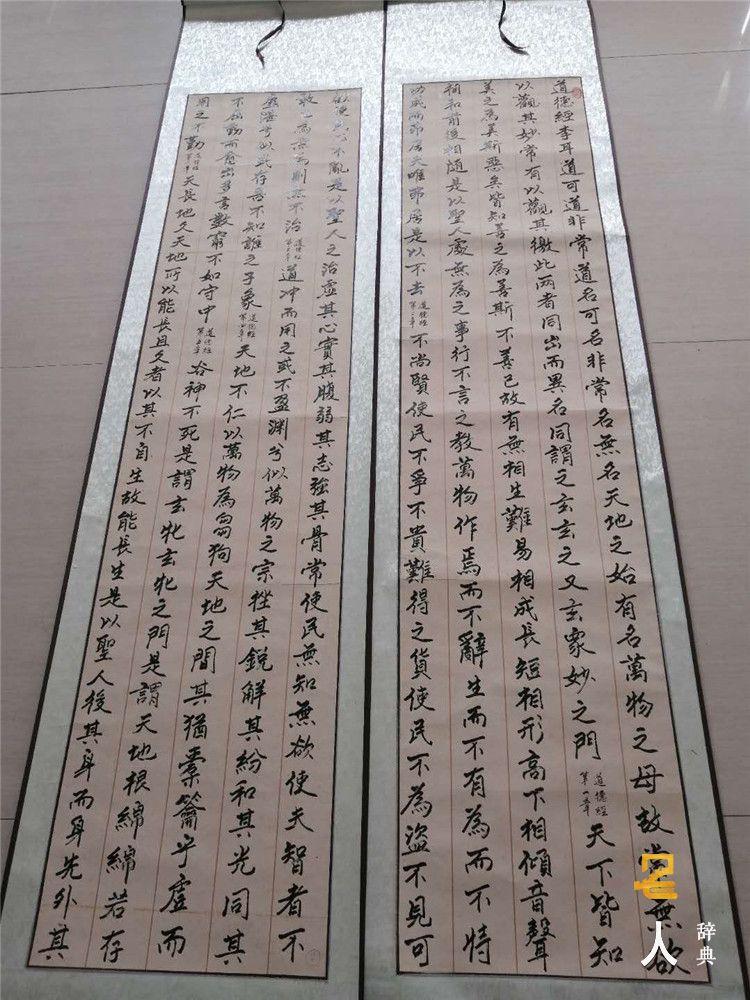 道德經李耳道可道非常道名可名非常名無名天地之始有名萬物之母故常無欲
以觀其妙常有以觀其徼此兩者同出而異名同謂之玄玄之又玄衆妙之門
道德經
第一章
天下皆知
美之為美斯惡矣皆知善之為善斯不善已故有無相生難易相成長短相形高下相傾音聲
相和前後相隨是以聖人處無為之事行不言之教萬物作焉而不辭生而不有為而不恃
功成而弗居夫唯弗居是以不去
道德經
第二章
不尚賢使民不爭不貴難得之貨使民不為盜不見可
欲使民心不亂是以聖人之治虛其心實其腹弱其志強其骨常使民無知無欲使夫智者不
敢也為無為則無不治
道德經
第三章
道冲而用之或不盈淵兮似萬物之宗挫其銳解其紛和其光同其
塵湛兮似或存吾不知誰之子象
道德經
第四章
天地不仁以萬物為芻狗天地之間其猶橐籥乎虛而
不屈動而愈出多言數窮不如守中
道德經
第五章
谷神不死是謂玄牝玄牝之門是謂天地根綿綿若存
用之不勤
道德經
第六章
天長地久天地所以能長且久者以其不自生故能長生是以聖人後其身而身先外其
人
辞典